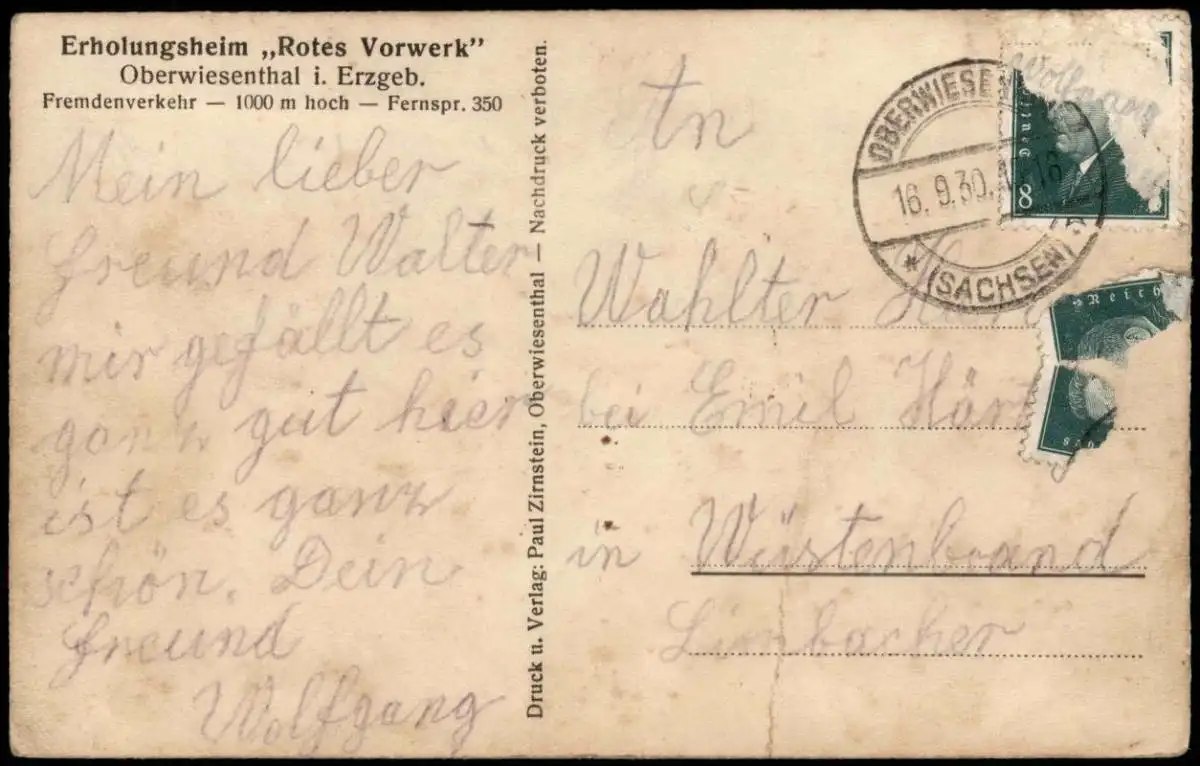 Erholungsheim „Rotes Vorwerk"
Oberwiesenthal i. Erzgeb.
Fremdenverkehr — 1000 m hoch — Fernspr. 350
Mein lieber
Freund Walter
mir gefällt es
ganz gut hier
ist es ganz
schön. Dein
Freund
Wolfgang
Druck u. Verlag: Paul Zirnstein, Oberwiesenthal — Nachdruck verboten.
OBERWIESEN
16. 9. 30.
* (SACHSEN)
Wolfgang
8
Reich
An
Wahlter
bei Emil
in Wüstenbrand